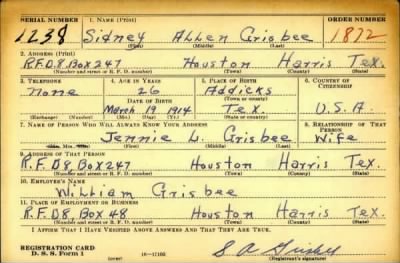 SERIAL NUMBER 1. NAME (Print) ORDER NUMBER
1238 Sidney Allen Grisbee 1872
(First) (Middle) (Last)
2. ADDRESS (Print)
R.F.D.8, Box 247 Houston Harris Tex.
(Number and street or R. F. D. number) (Town) (County) (State)
3. TELEPHONE 4. AGE IN YEARS 5. PLACE OF BIRTH 6. COUNTRY OF CITIZENSHIP
None 26 Addicks
DATE OF BIRTH (Town or county)
March 19 1914 Tex. U.S.A.
(Exchange) (Number) (Mo.) (Day) (Yr.) (State or country)
7. NAME OF PERSON WHO WILL ALWAYS KNOW YOUR ADDRESS 8. RELATIONSHIP OF THAT PERSON
Jennie L. Grisbee Wife
(First) (Middle) (Last)
9. ADDRESS OF THAT PERSON
R.F.D8, Box 247 Houston Harris Tex.
(Number and street or R. F. D. number) (Town) (County) (State)
10. EMPLOYER'S NAME
William Grisbee
11. PLACE OF EMPLOYMENT OR BUSINESS
R.F.D8, Box 48 Houston Harris Tex.
(Number and street or R. F. D. number) (Town) (County) (State)
I AFFIRM THAT I HAVE VERIFIED ABOVE ANSWERS AND THAT THEY ARE TRUE.
REGISTRATION CARD
D. S. S. Form 1 (over) S A Grisbee
(Registrant's signature)